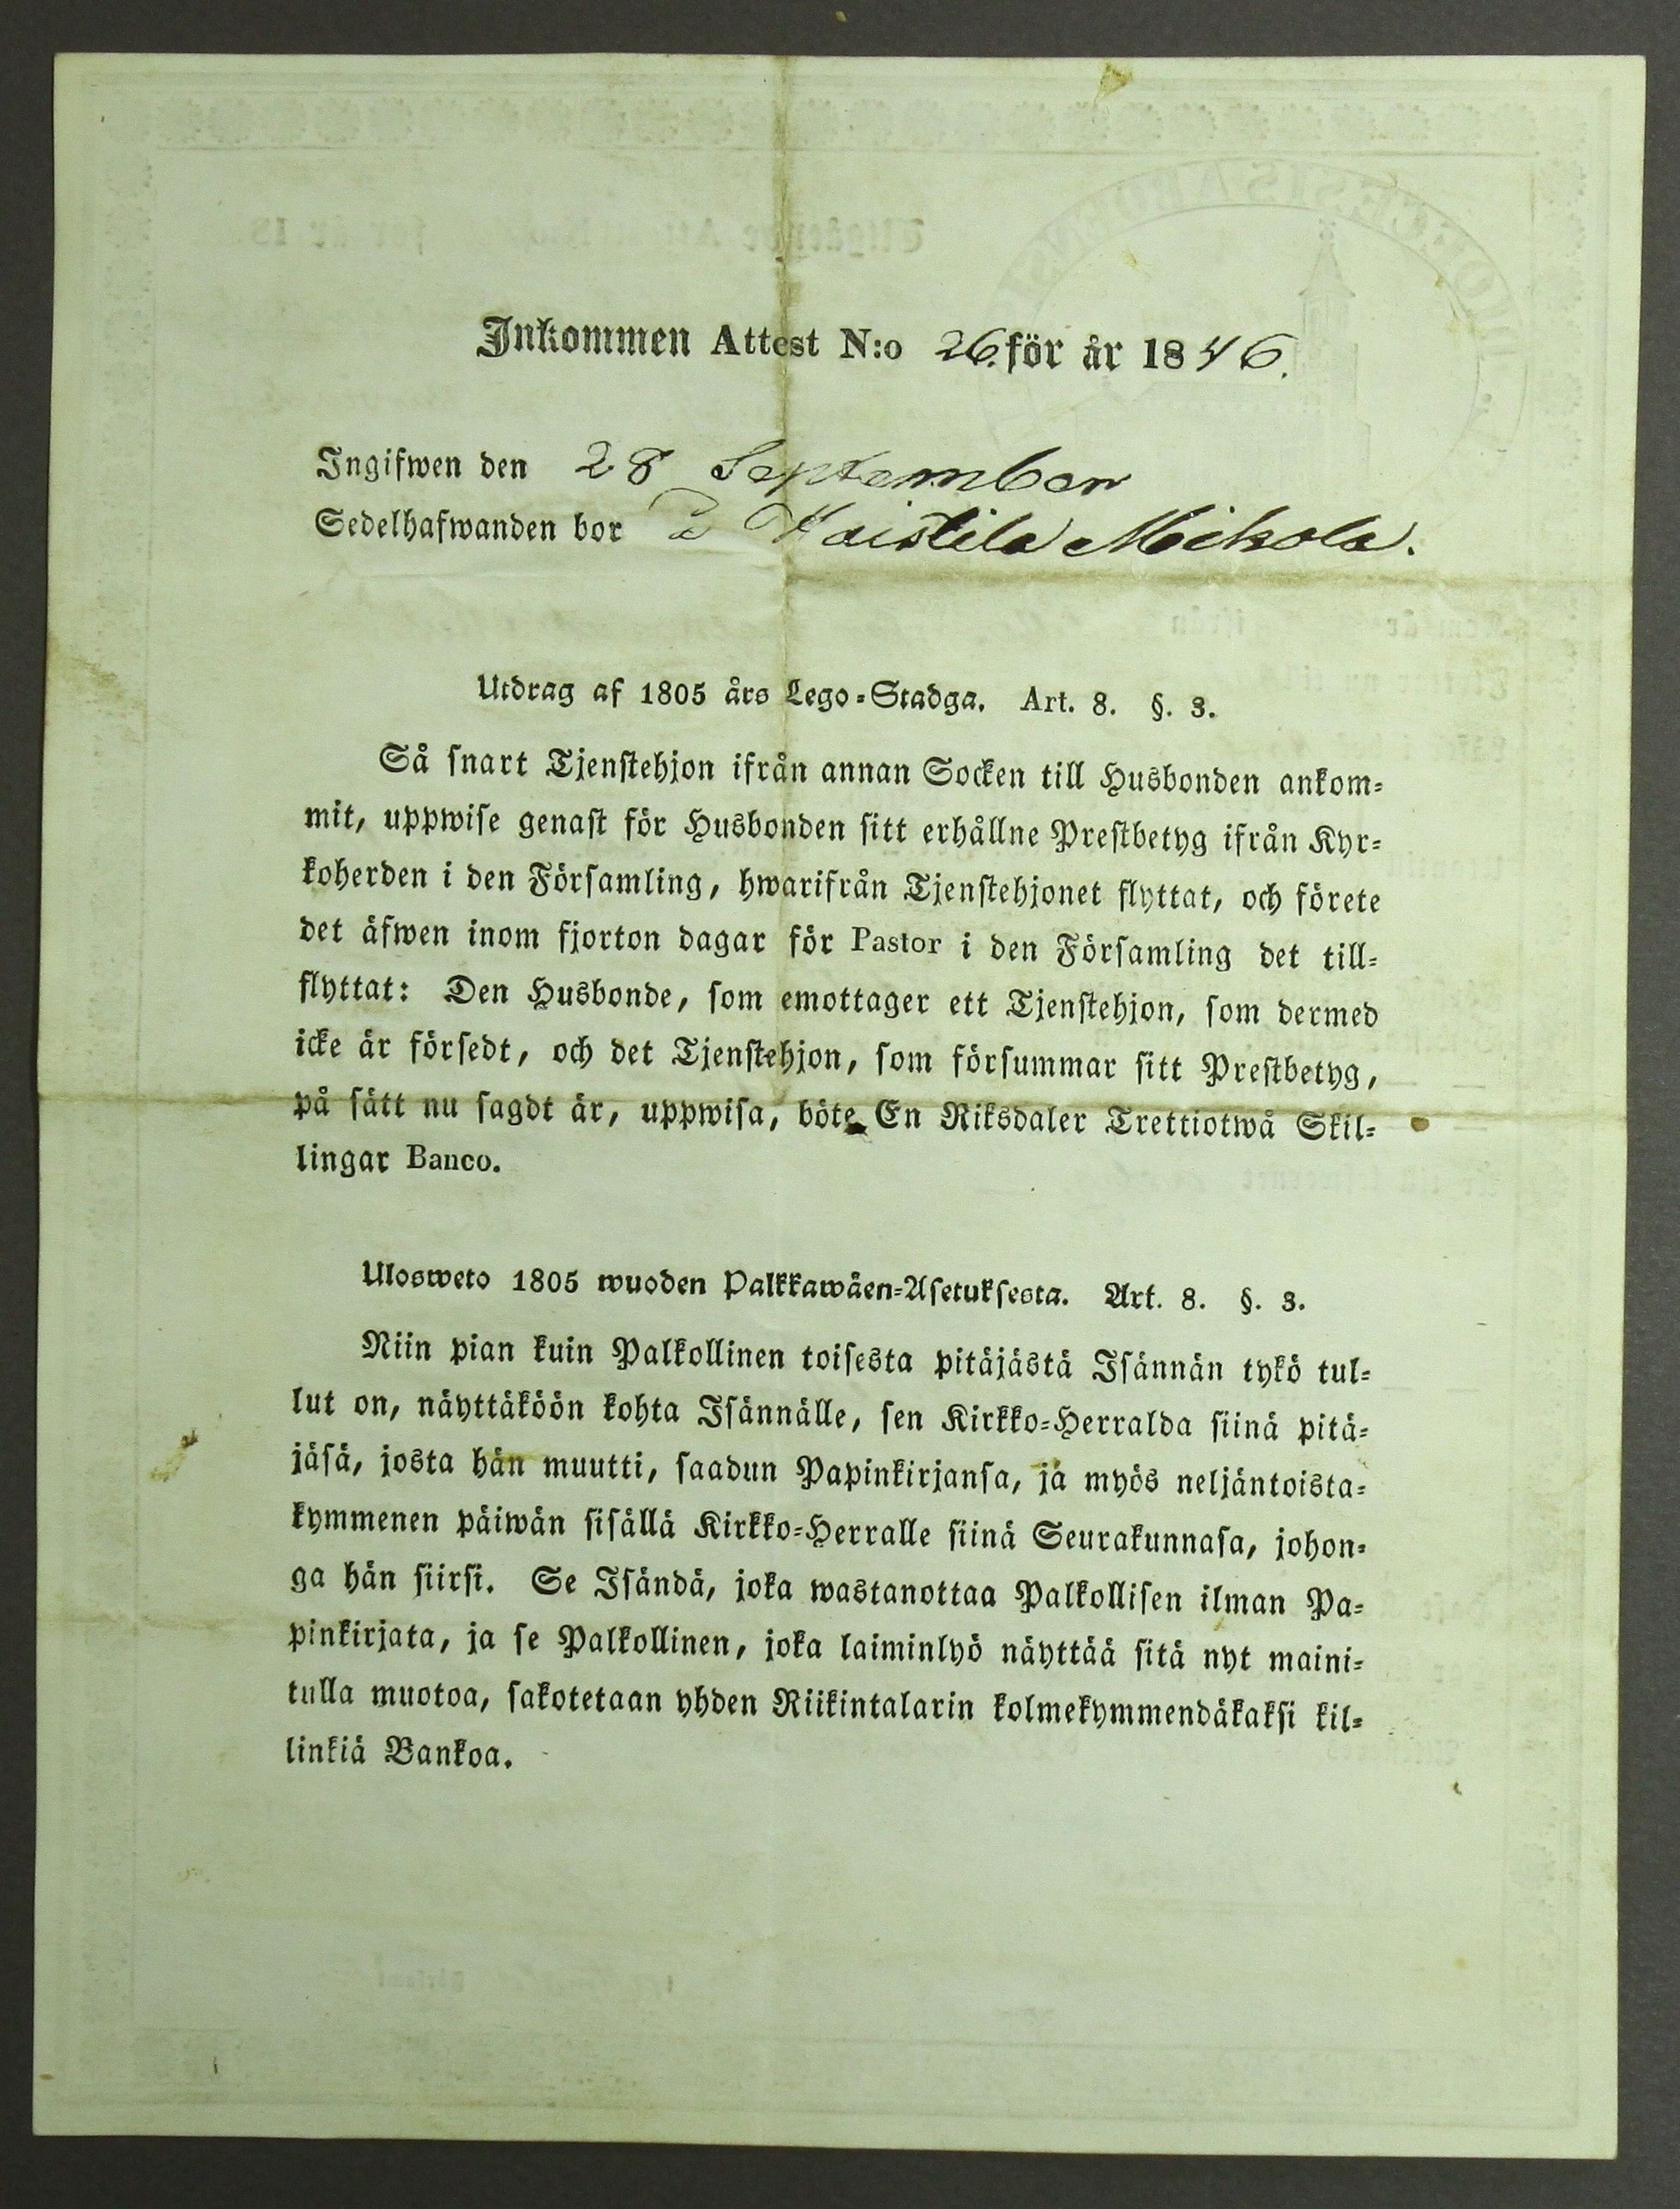 Inkommen Attest N:o 26. för år 1846.
Ingifwen den 28 September
Sedelhafwanden bor i Haistila Mikola.
Utdrag af 1805 års Lego-Stadga. Art. 8. §. 3.
Så snart Tjenstehjon ifrån annan Socken till Husbonden ankom-
mit, uppwise genast för Husbonden sitt erhållne Prestbetyg ifrån Kyr-
koherden i den Församling, hwarifrån Tjenstehjonet flyttat, och förete
det äfwen inom fjorton dagar för Pastor i den Församling det till-
flyttat: Den Husbonde, som emottager ett Tjenstehjon, som dermed
icke är försedt, och det Tjenstehjon, som försummar sitt Prestbetyg,
på sätt nu sagdt är, uppwisa, böte En Riksdaler Trettiotwå Skil-
lingar Banco.
Ulosweto 1805 wuoden Palkkawäen-Asetuksesta. Art. 8. §. 3.
Niin pian kuin Palkollinen toisesta pitäjästä Isännän tykö tul-
lut on, näyttäköön kohta Isännälle, sen Kirkko-Herralda siinä pitä-
jäsä, josta hän muutti, saadun Papinkirjansa, ja myös neljäntoista-
kymmenen päiwän sisällä Kirkko-Herralle siinä Seurakunnasa, johon-
ga hän siirsi. Se Isändä, joka wastanottaa Palkollisen ilman Pa-
pinkirjata, ja se Palkollinen, joka laiminlyö näyttää sitä nyt maini-
tulla muotoa, sakotetaan yhden Riikintalarin kolmekymmendäkaksi kil-
linkiä Bankoa.